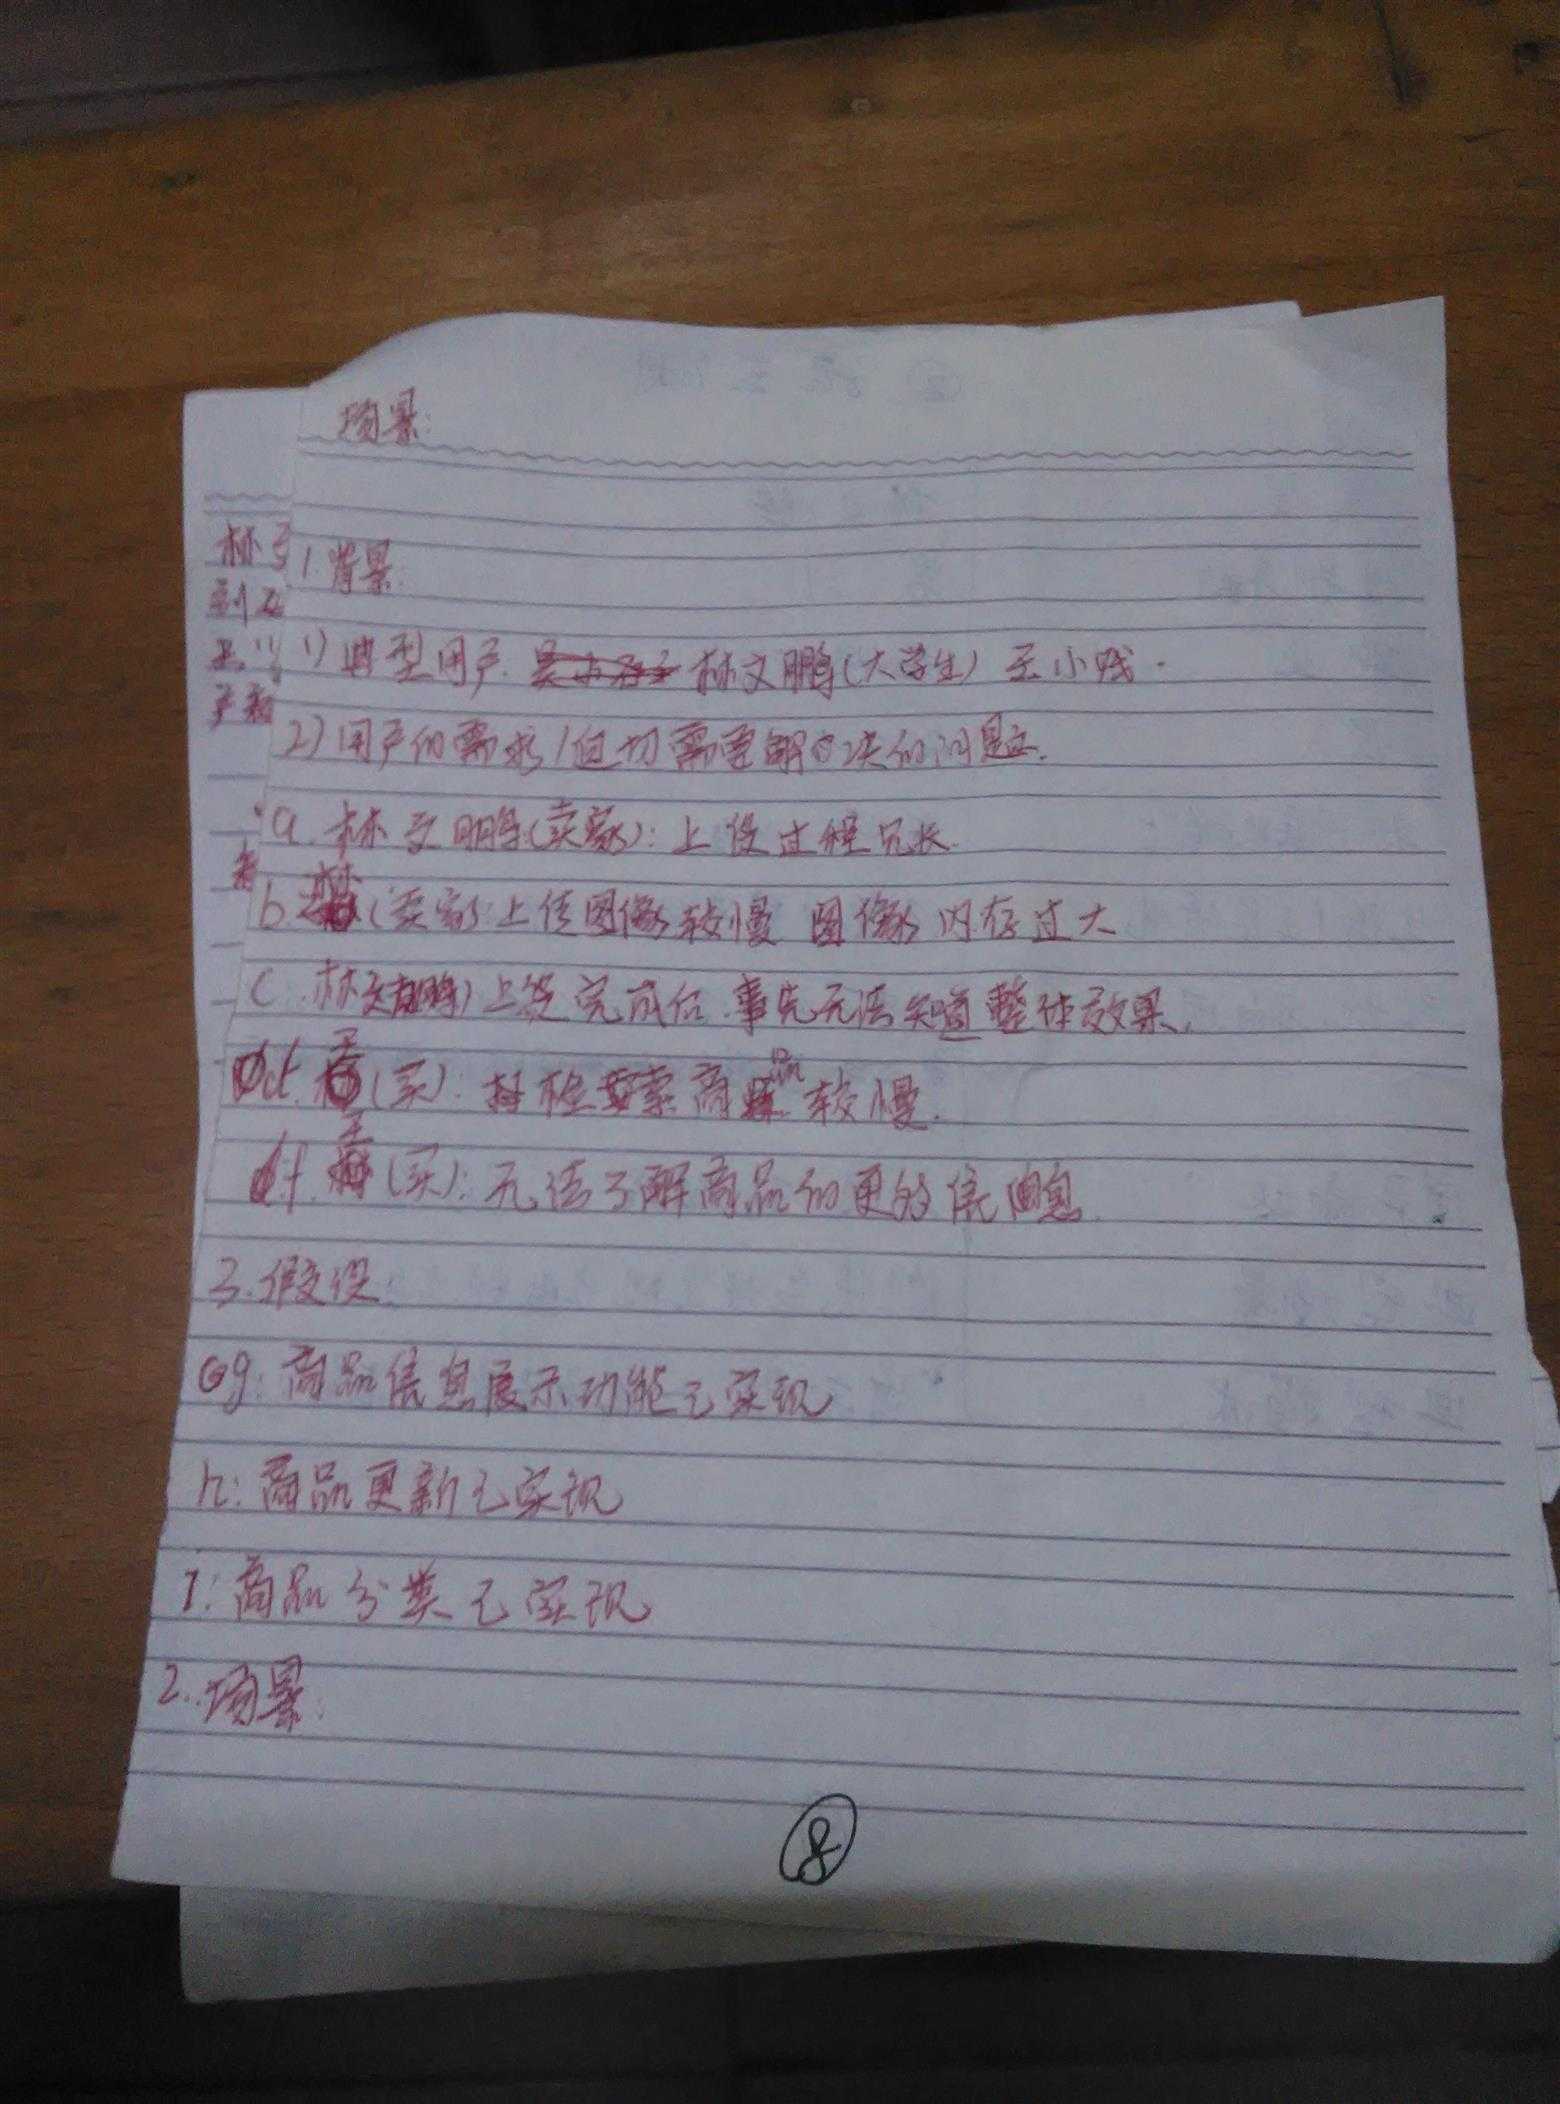 场景:
1 背景:
1) 典型用户. 林文鹏(大学生) 王小贱.
2) 用户的需求/迫切需要解决的问题.
a. 林文鹏(卖家): 上传过程冗长.
b. 林(卖家) 上传图像较慢 图像内存过大
c. 林文鹏) 上传完成后. 事先无法知道整体效果.
d. 王(买): 检索商品较慢.
f. 王(买): 无法了解商品的更多信息.
3. 假设
g: 商品信息展示功能已实现
h: 商品更新已实现
I: 商品分类已实现
2. 场景:
8